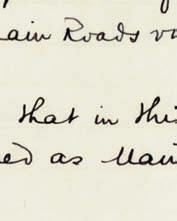 ain Roads
that in this
ed as Main